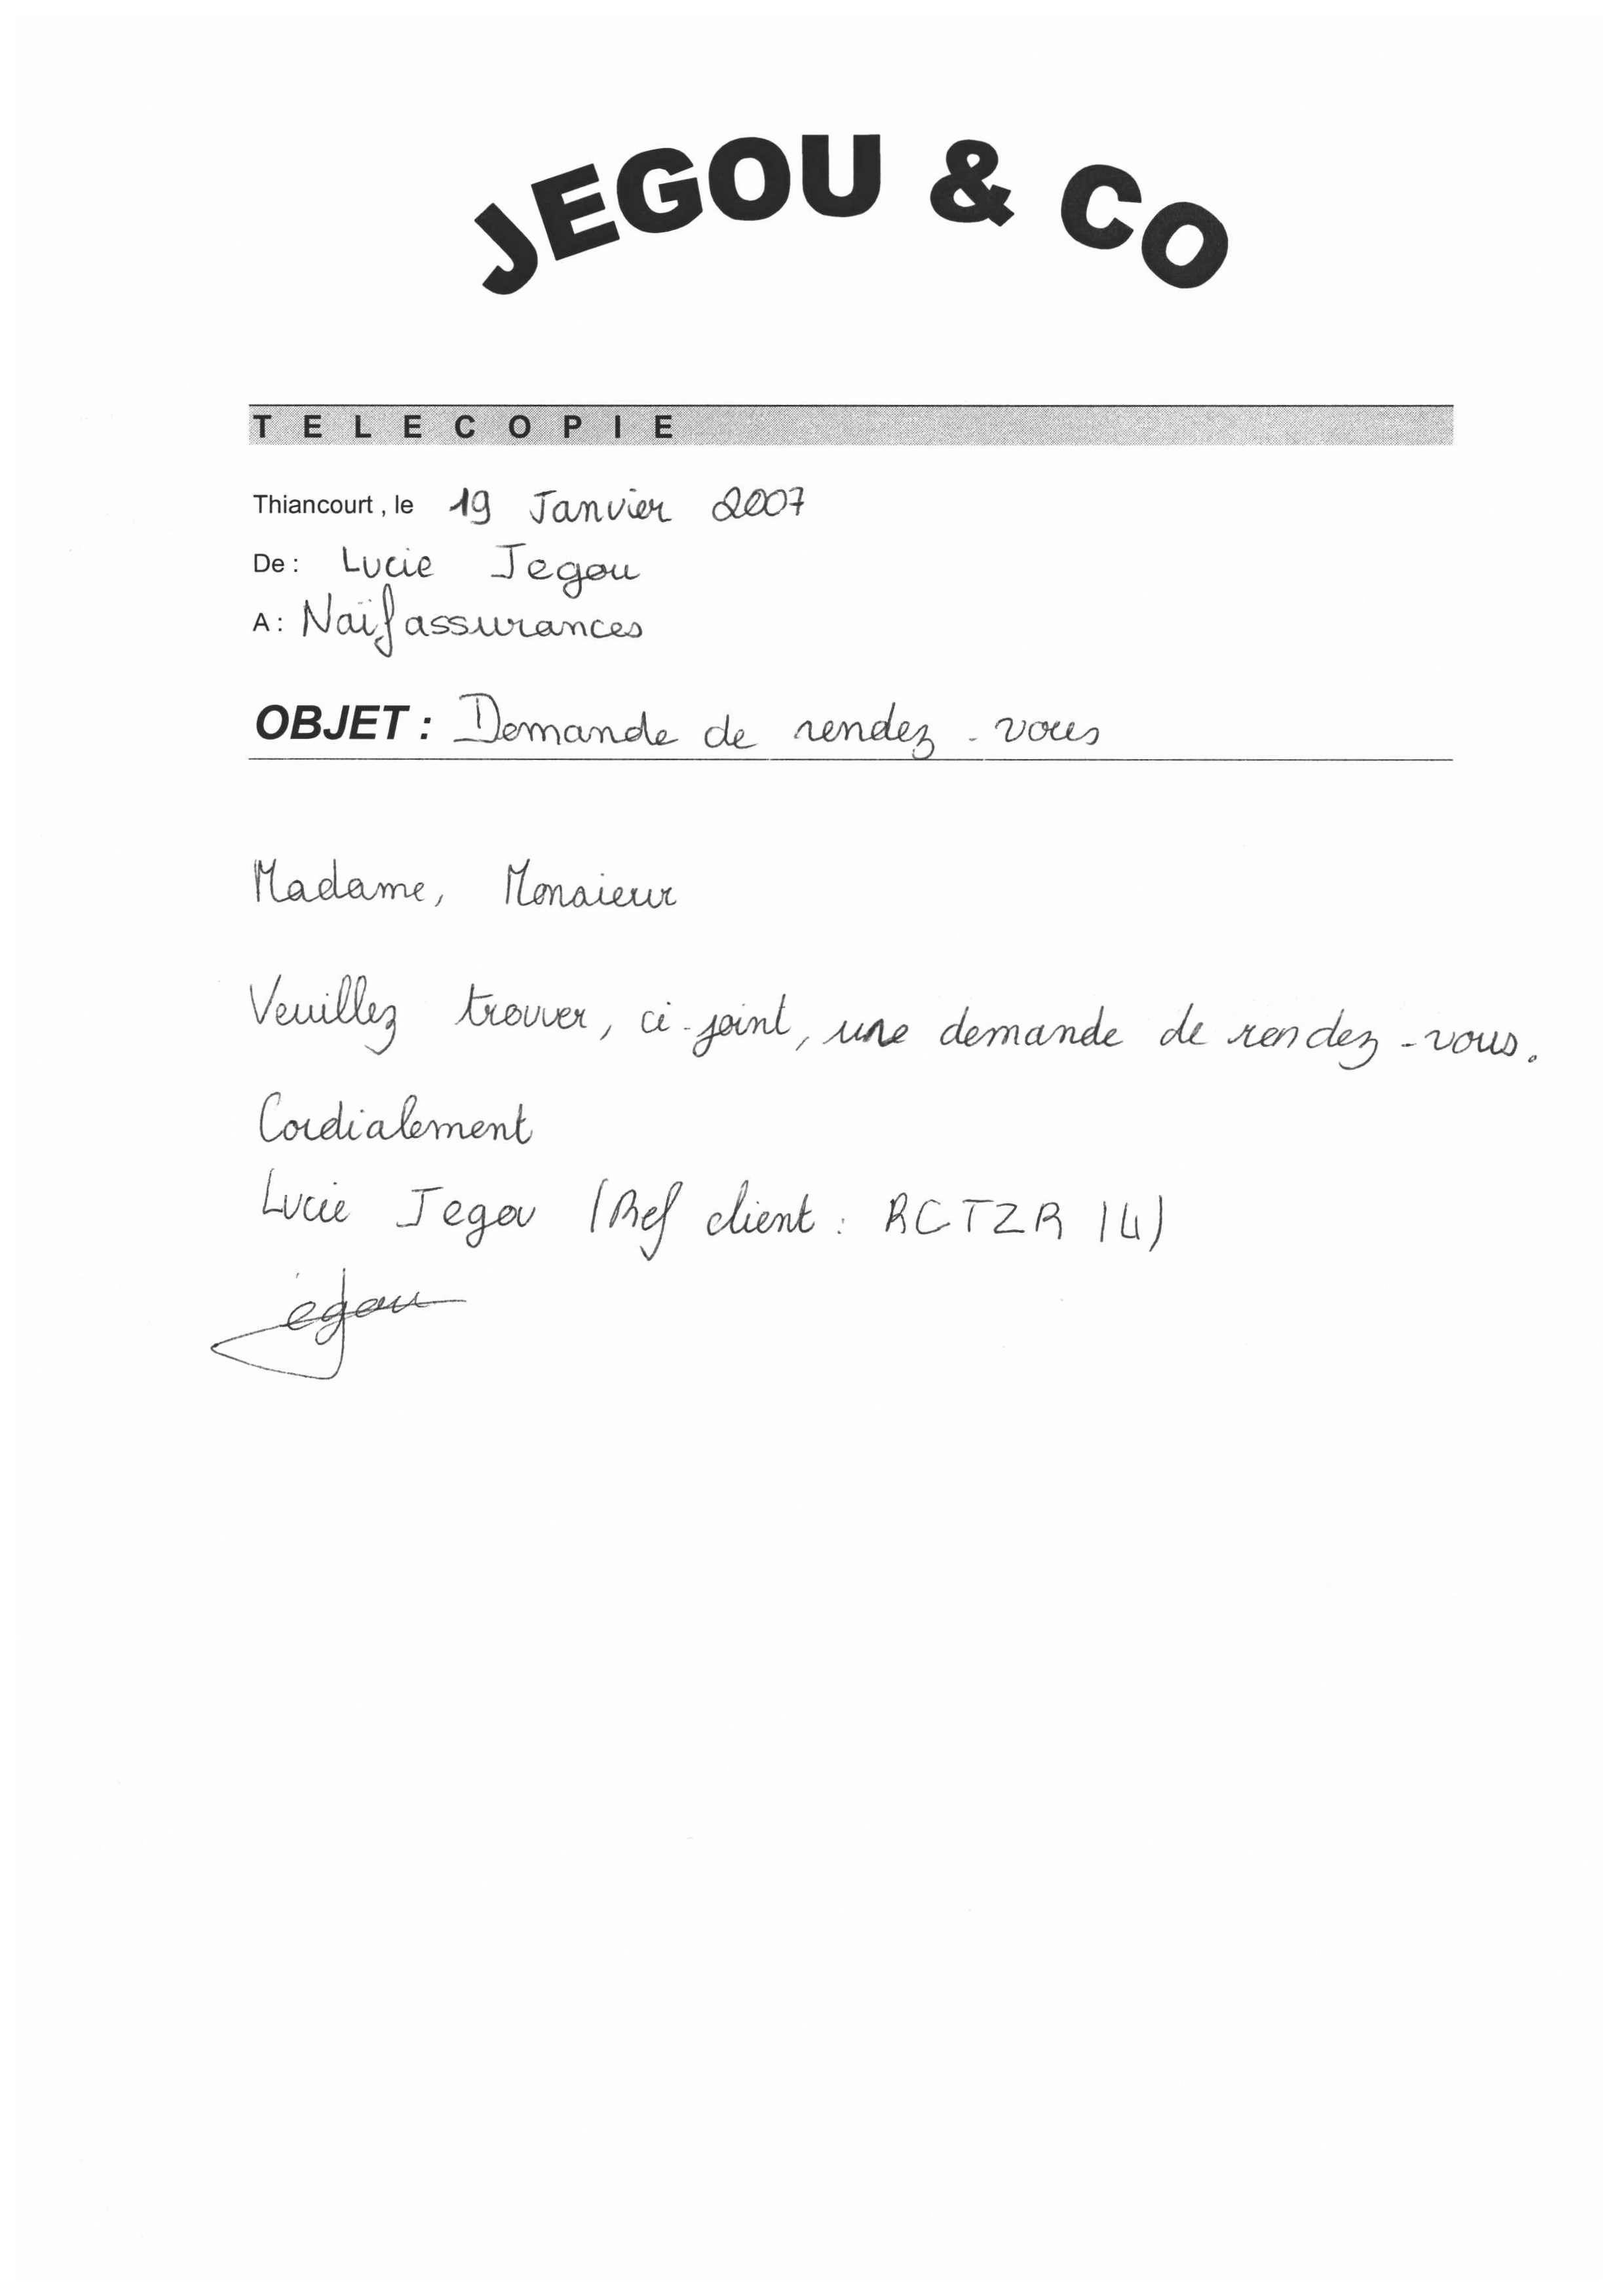 JEGOU & CO
TELECOPIE
Thiancourt, le 19 Janvier 2007
De : Lucie Jegou
A : Naïfassurances
OBJET : Demande de rendez-vous
Madame, Monsieur
Veuillez trouver, ci-joint, une demande de rendez-vous.
Cordialement
Lucie Jegou (Ref client : RCTZR14)
Jegou